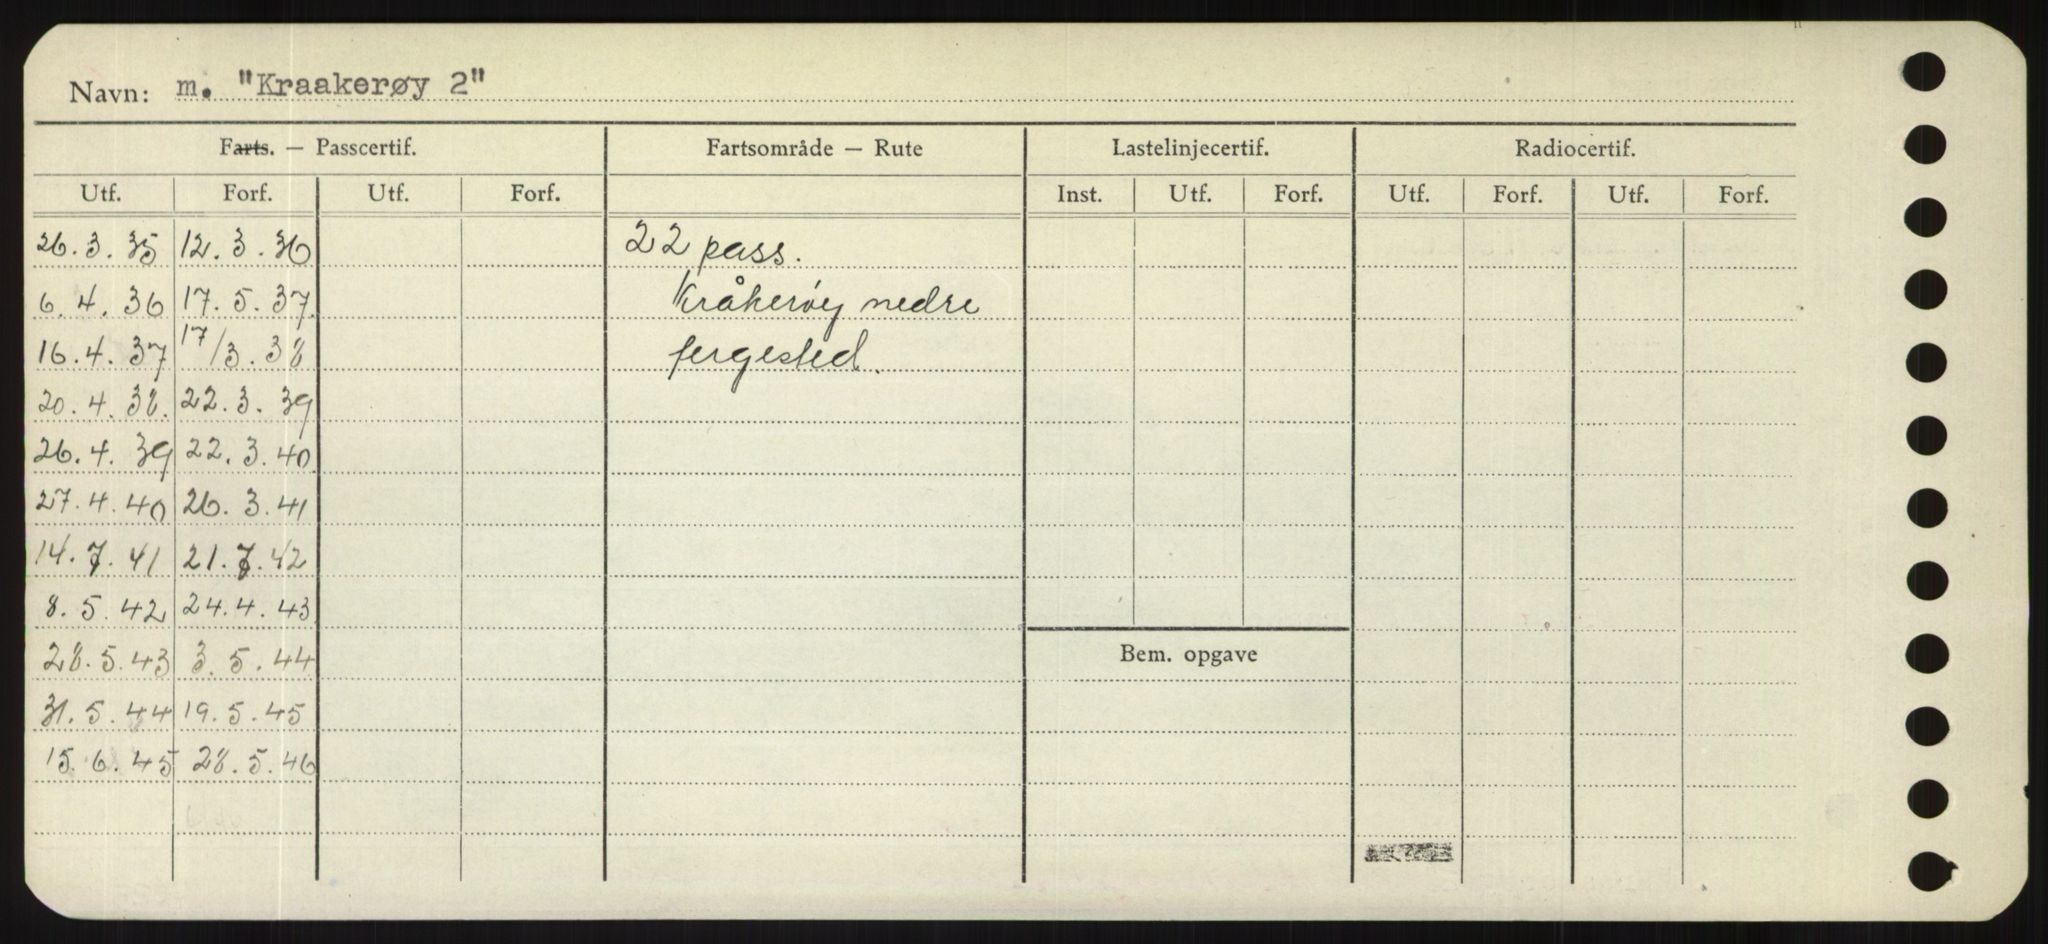 Navn: m. "Kraakerøy 2"
Farts. — Passcertif. Fartsområde — Rute Lastelinjecertif. Radiocertif.
Utf. Forf. Utf. Forf. Inst. Utf. Forf. Utf. Forf. Utf. Forf.
26.3.35 12.3.36 22 pass.
6.4.36 17.5.37. Kråkerøy nedre
16.4.37 17/3.38 fergested.
20.4.38. 22.3.39
26.4.39 22.3.40
27.4.40 26.3.41
14.7.41 21.7.42
8.5.42 24.4.43
28.5.43 3.5.44 Bem. opgave
31.5.44 19.5.45
15.6.45 28.5.46